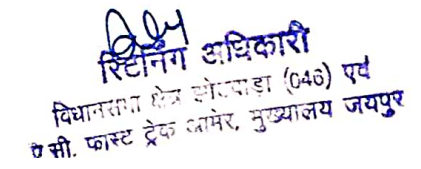 रिटर्निंग अधिकारी
विधानसभा क्षेत्र झोटवाड़ा (046) एवं
ए सी. फास्ट ट्रेक आमेर, मुख्यालय जयपुर